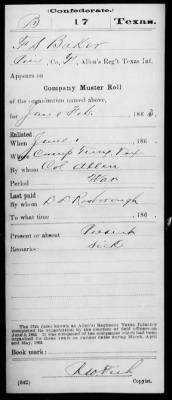 (Confederate.)
B 17 Texas.
F S Baker
Co. H, Allen's Reg't Texas Inf.
Appears on
Company Muster Roll
of the organization named above,
for Jan & Feb, 186 3.
Enlisted
When June, 186 .
Where Camp Terry Tex
By whom Col Allen
Period War
Last paid
By whom
To what time , 186 .
Present or absent Present
Remarks: Sick
The 17th (also known as Allen's) Regiment Texas Infantry
completed its organization by the election of field officers on
and May, 1862.
Book mark:
(642) Copyist.